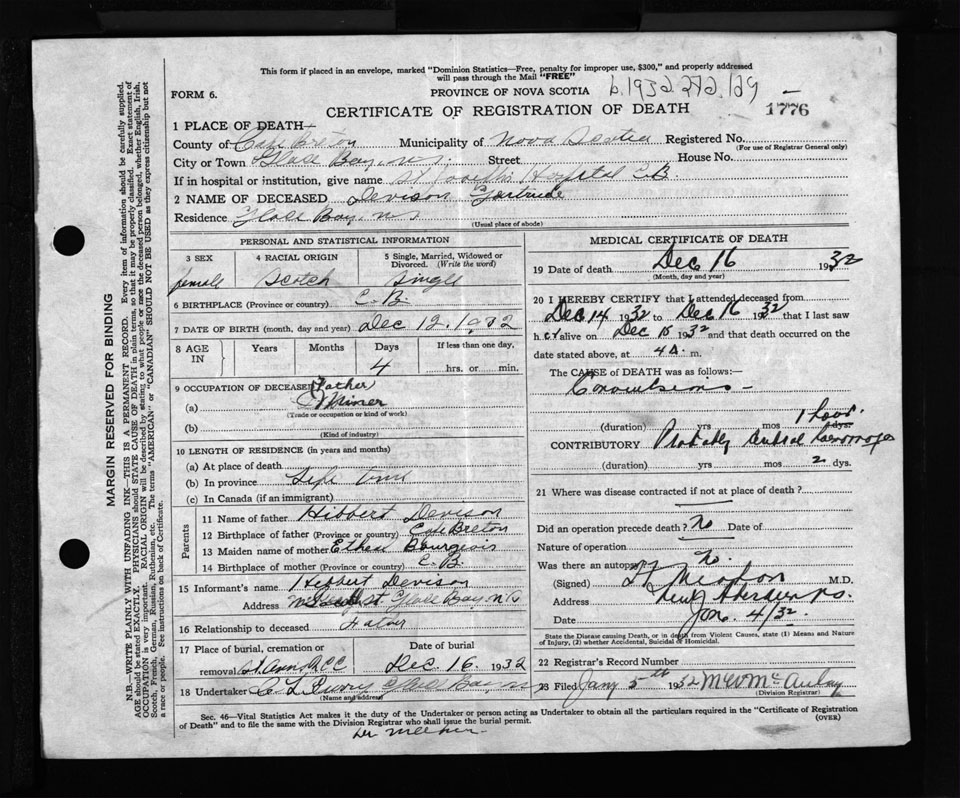 This form if placed in an envelope, marked "Dominion Statistics—Free, penalty for improper use, $300," and properly addressed
will pass through the Mail "FREE"
FORM 6.
PROVINCE OF NOVA SCOTIA
b.1932.272.129
CERTIFICATE OF REGISTRATION OF DEATH
1776
1 PLACE OF DEATH—
County of Cape Breton Municipality of Nova Scotia Registered No.
(For use of Registrar General only)
City or Town Glace Bay, N.S. Street House No.
If in hospital or institution, give name St Joseph's Hospital C.B.
2 NAME OF DECEASED Devison Gertrude
Residence Glace Bay, N.S.
(Usual place of abode)
PERSONAL AND STATISTICAL INFORMATION
3 SEX
4 RACIAL ORIGIN
5 Single, Married, Widowed or
Divorced. (Write the word)
female Scotch Single
6 BIRTHPLACE (Province or country) C.B.
7 DATE OF BIRTH (month, day and year) Dec 12. 1932
8 AGE
IN
Years Months Days If less than one day,
4 hrs. or min.
9 OCCUPATION OF DECEASED (Father)
(a) Miner
(Trade or occupation or kind of work)
(b)
(Kind of industry)
10 LENGTH OF RESIDENCE (in years and months)
(a) At place of death
(b) In province Life time
(c) In Canada (if an immigrant)
Parents
11 Name of father Hibbert Devison
12 Birthplace of father (Province or country) Cape Breton
13 Maiden name of mother Ethel Bourgeois
14 Birthplace of mother (Province or country) C.B.
15 Informant's name Hibbert Devison
Address St Glace Bay N.S.
16 Relationship to deceased Father
17 Place of burial, cremation or
removal St. Anns R C C
Date of burial
Dec. 16. 1932
18 Undertaker Glace Bay N.S.
(Name and address)
MEDICAL CERTIFICATE OF DEATH
19 Date of death Dec 16 1932
(Month, day and year)
20 I HEREBY CERTIFY that I attended deceased from
Dec 14 1932 to Dec 16 1932 that I last saw
her alive on Dec 15 1932 and that death occurred on the
date stated above, at 4 a. m.
The CAUSE of DEATH was as follows:
Convulsions—
(duration) yrs mos 1 hour dys.
CONTRIBUTORY Probably cerebral haemorrhage
(duration) yrs mos 2 dys.
21 Where was disease contracted if not at place of death?
Did an operation precede death? No Date of
Nature of operation
Was there an autopsy? No.
(Signed) M.D.
Address New Aberdeen N.S.
Date Jan. 4/32
State the Disease causing Death, or in death from Violent Causes, state (1) Means and Nature
of Injury, (2) whether Accidental, Suicidal or Homicidal.
22 Registrar's Record Number
23 Filed Jany 5th 1932
(Division Registrar)
Sec. 46—Vital Statistics Act makes it the duty of the Undertaker or person acting as Undertaker to obtain all the particulars required in the "Certificate of Registration
of Death" and to file the same with the Division Registrar who shall issue the burial permit.
(OVER)
MARGIN RESERVED FOR BINDING
N.B.—WRITE PLAINLY WITH UNFADING INK—THIS IS A PERMANENT RECORD. Every item of information should be carefully supplied.
AGE should be stated EXACTLY. PHYSICIANS should STATE CAUSE OF DEATH in plain terms, so that it may be properly classified. Exact statement of
OCCUPATION is very important. RACIAL ORIGIN will be described by stating to what people or race the deceased person belonged, whether English, Irish,
Scotch, French, German, Russian, Ruthenian, etc. The terms "AMERICAN" or "CANADIAN" SHOULD NOT BE USED as they express citizenship but not
a race or people. See instructions on back of Certificate.